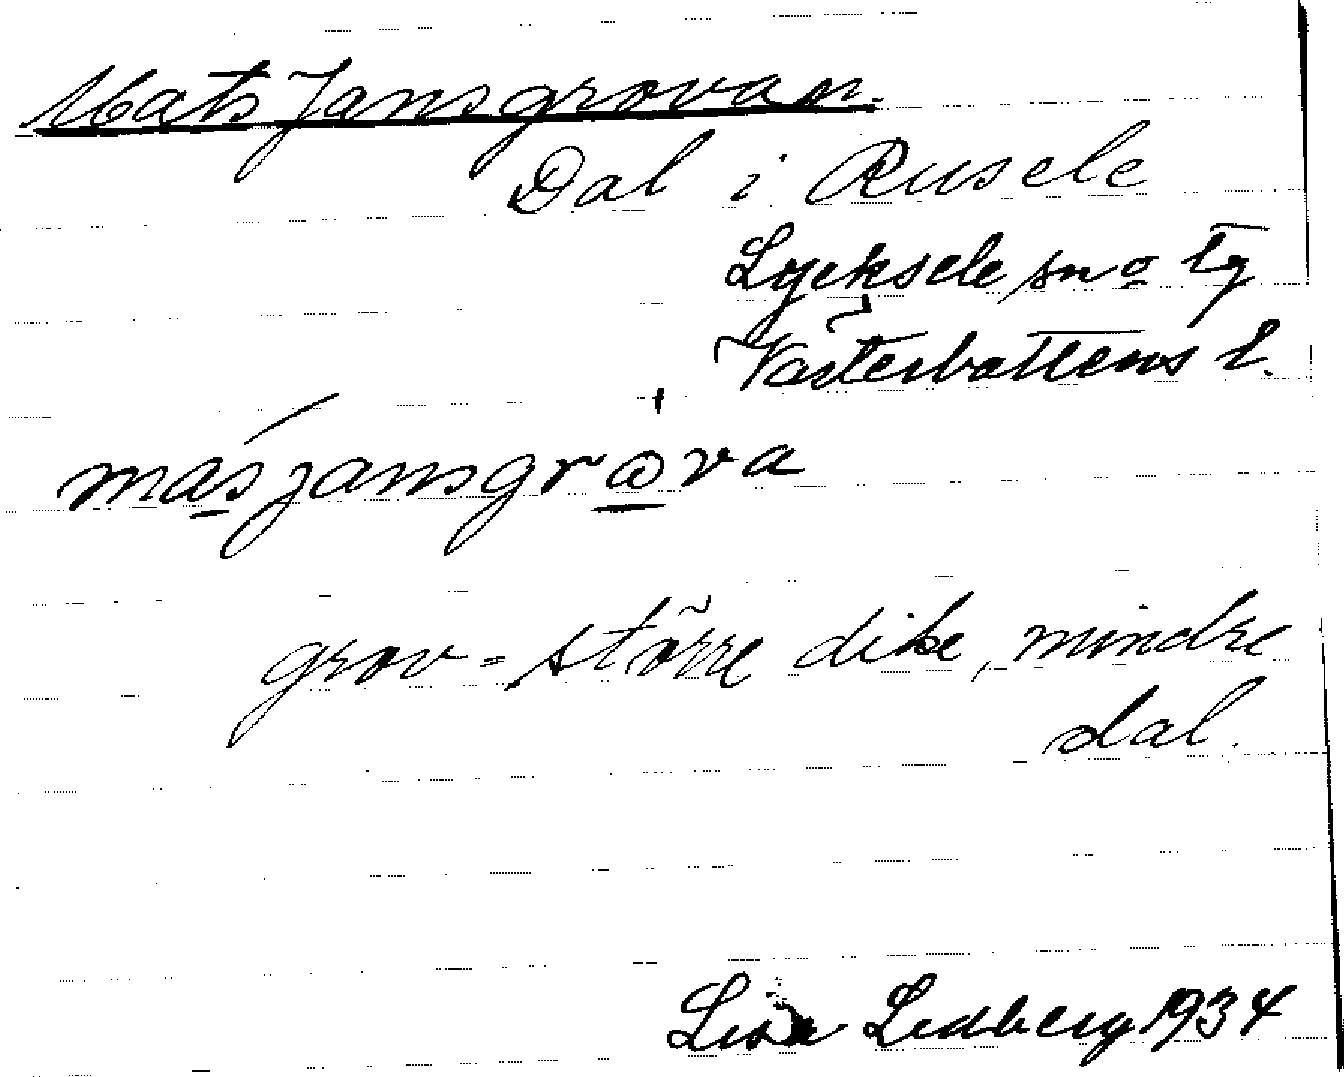 Mats Jansgrovan.
Dal i Rusele
Lycksele sn o tg
Västerbottens l.
masjansgrava
grov = större dike, mindre
dal.
Lisa Lidberg 1934